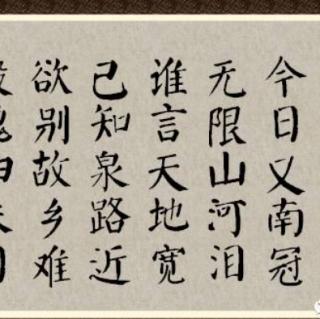 今日又南冠
无限山河泪
谁言天地宽
己知泉路近
欲别故乡难